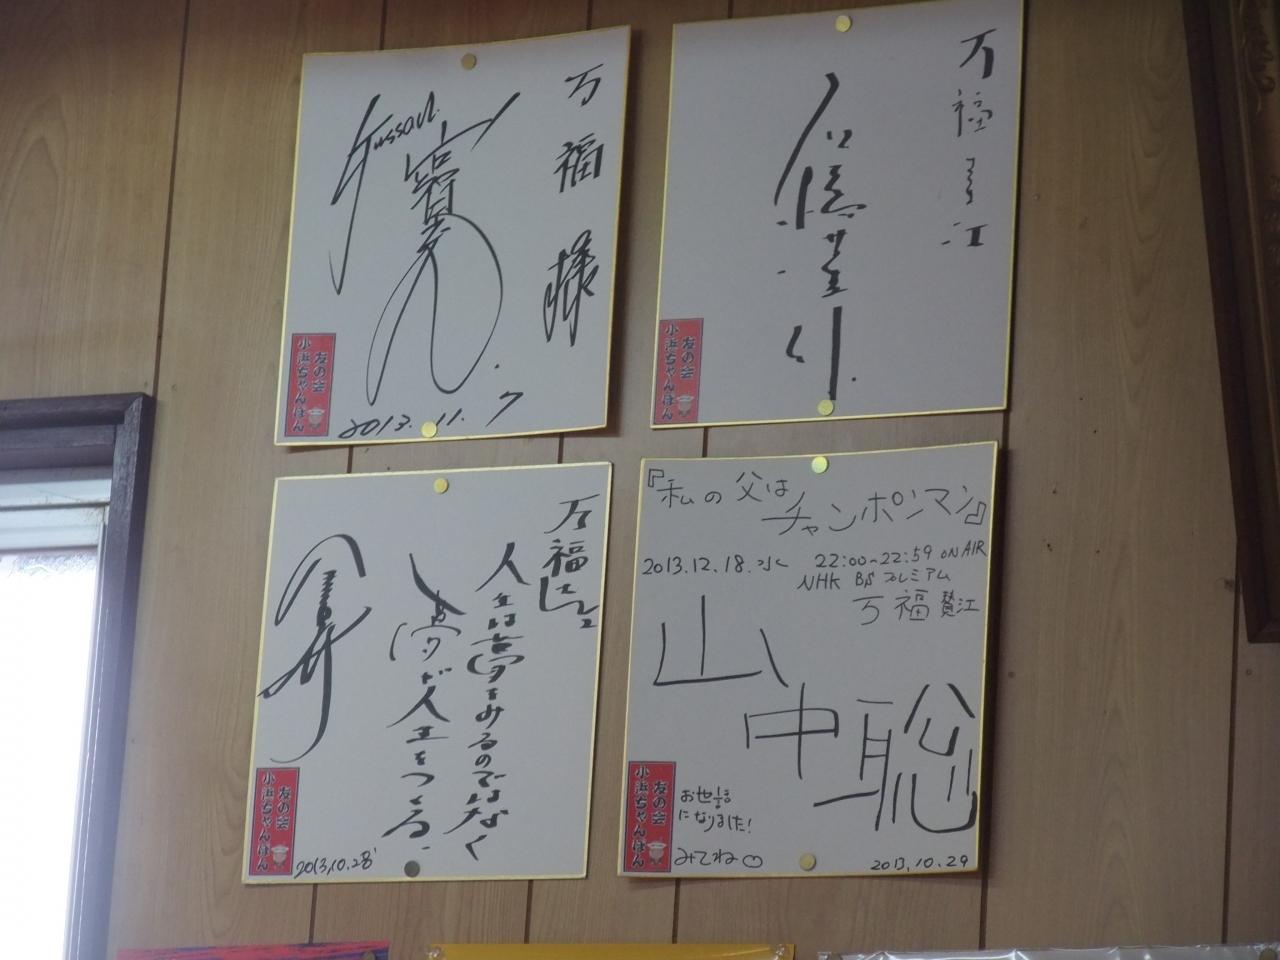 万福様
2013.11.7
友の会
小浜ちゃんぽん
万福
江
友の会
小浜ちゃんぽん
万福さん江
人生は夢をみるのではなく
夢が人生をつくる.
2013.10.28
友の会
小浜ちゃんぽん
『私の父は
チャンポンマン』
2013.12.18.水 22:00~22:59 ON AIR
NHK BSプレミアム
万福賛江
山中聡
お世話
になりました!
みてね♡
2013.10.29
友の会
小浜ちゃんぽん